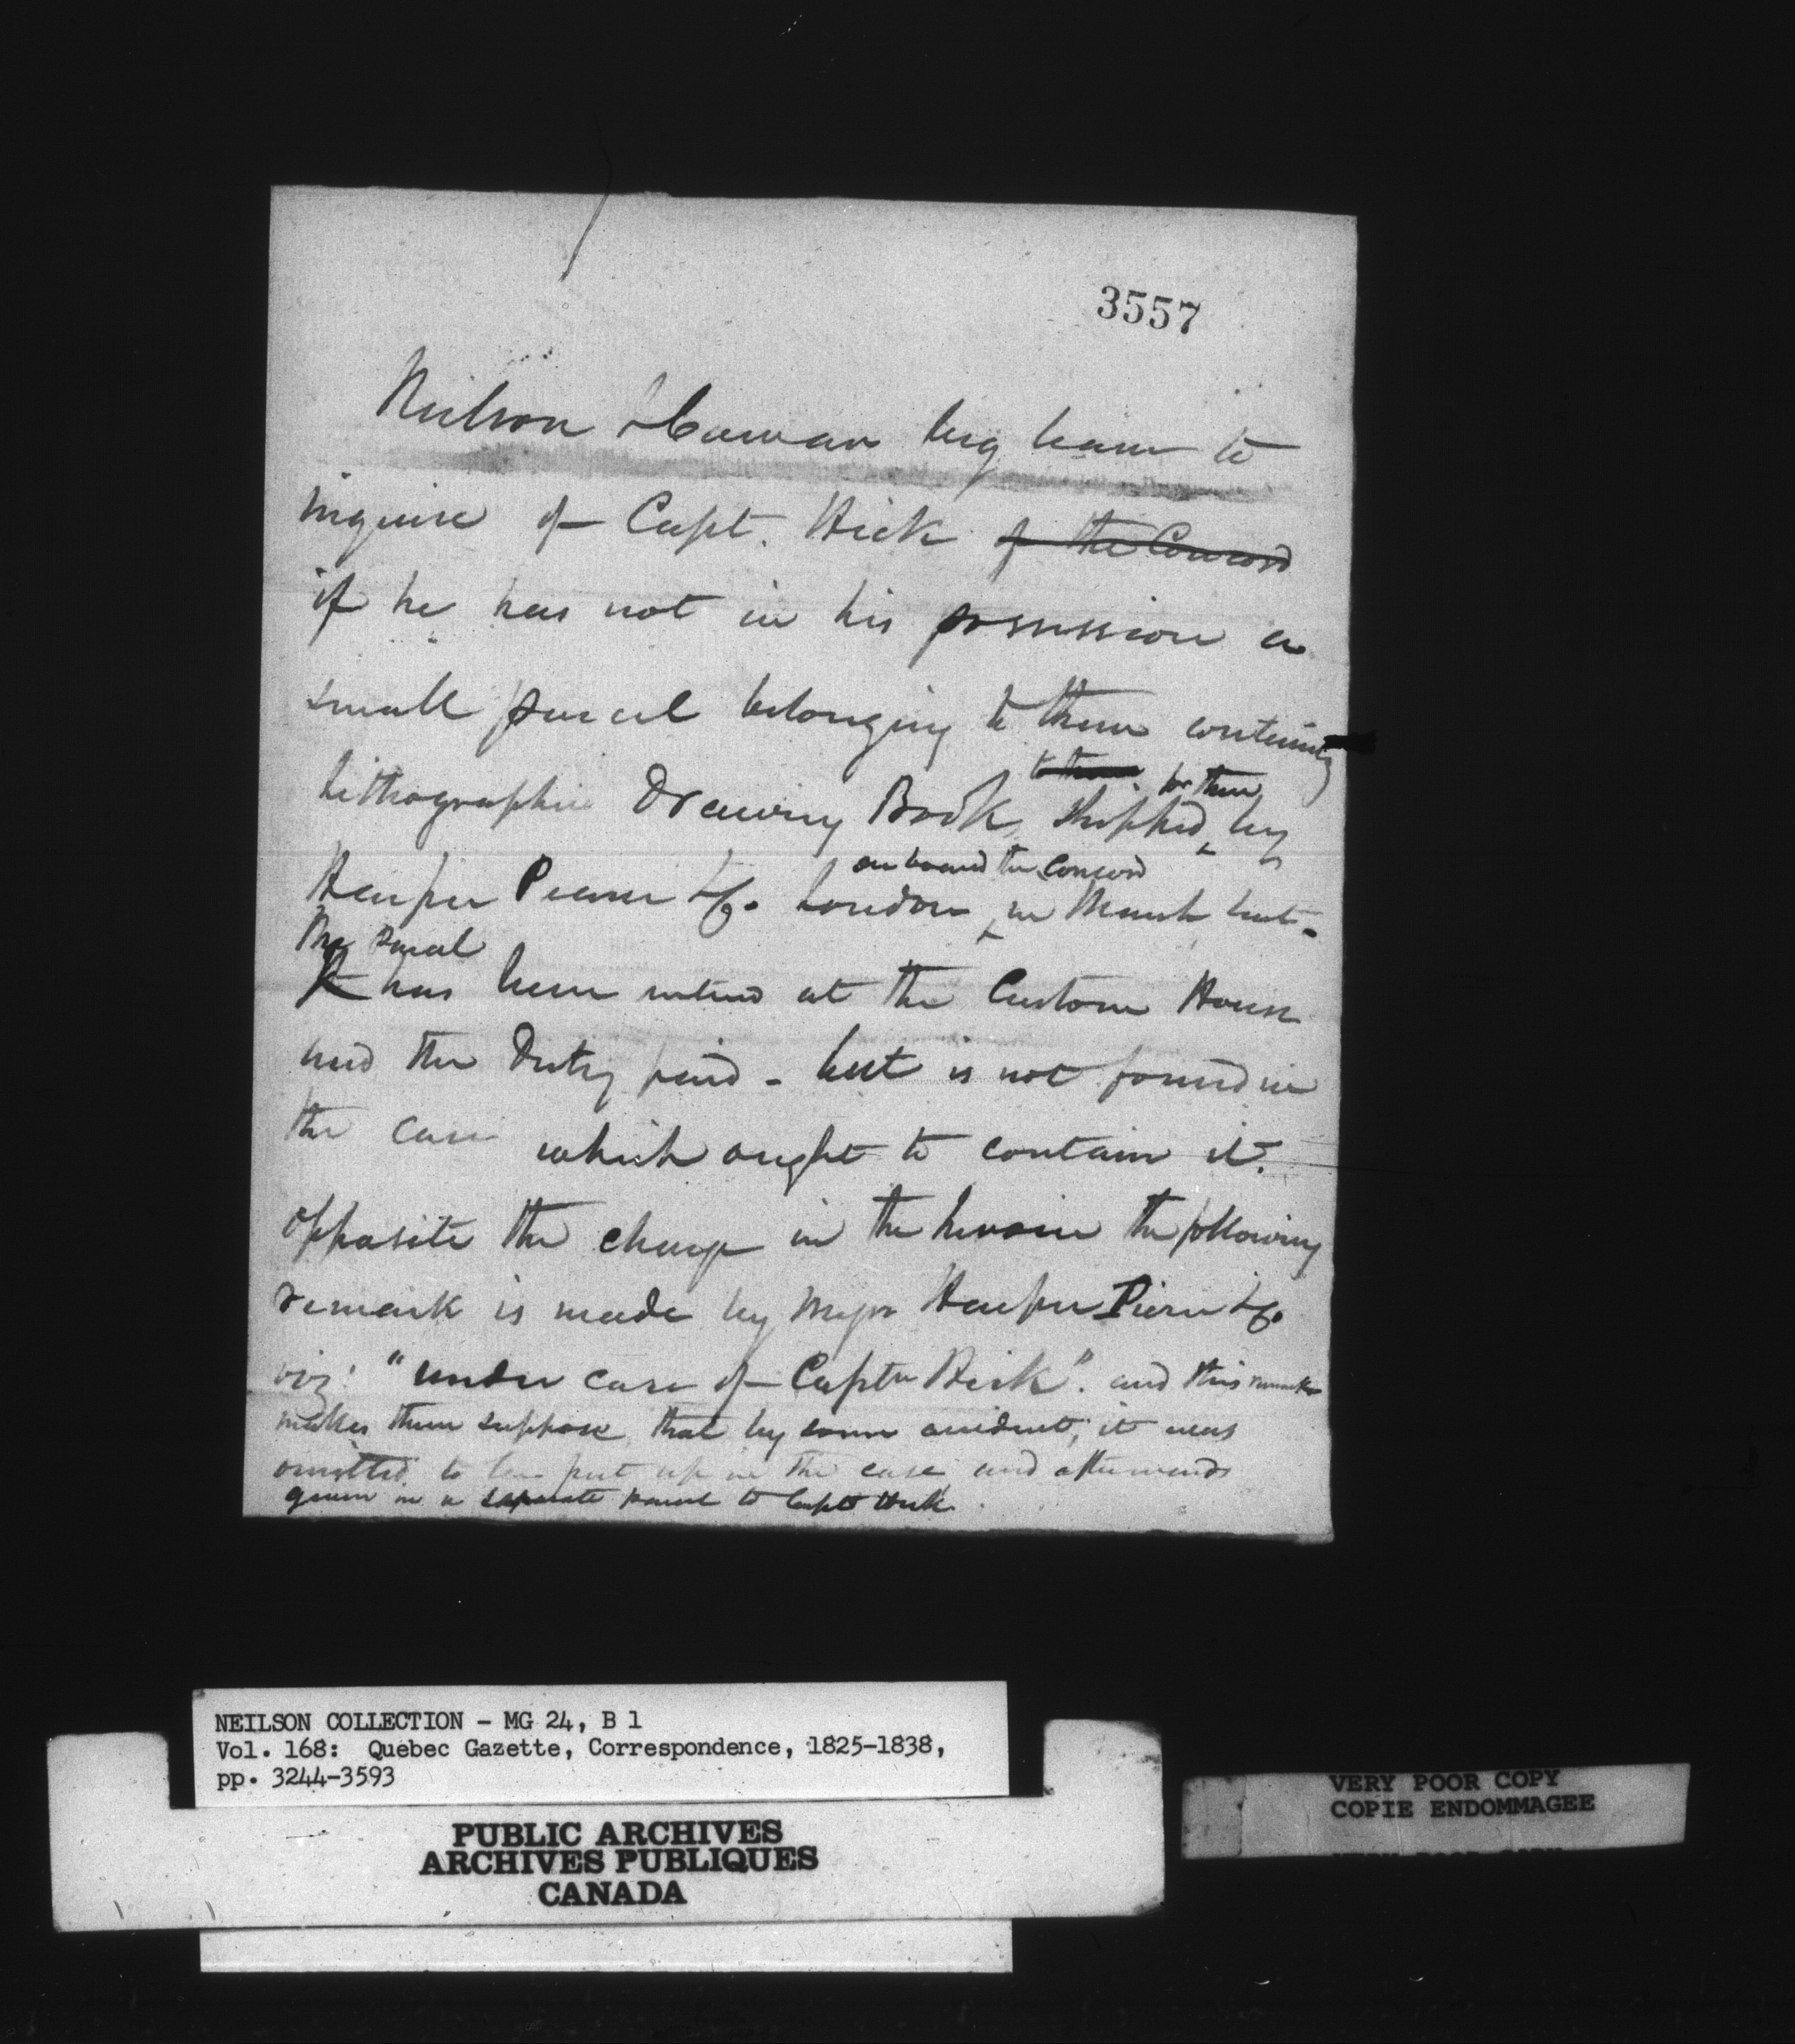 3557
Neilson & Cowan beg leave to
inquire of Capt. Hick of the Concord
if he has not in his possession a
small parcel belonging to them containing
to them for them
Lithographic Drawing Book, shipped by
on board the Concord
Harper Pierce & Co. London in March last.
The Parcel
It has been entered at the Custom House
and the Duty paid - but is not found in
the case which ought to contain it.
Opposite the charge in the Invoice the following
remark is made by Messrs Harper Pierce & Co.
viz: "under care of Captn Hick". and this remark
makes them suppose that by some accident, it was
omitted to be put up in the case and afterwards
given in a separate parcel to Capt Hick.
NEILSON COLLECTION - MG 24, B 1
Vol. 168: Quebec Gazette, Correspondence, 1825-1838,
pp. 3244-3593
PUBLIC ARCHIVES
ARCHIVES PUBLIQUES
CANADA
VERY POOR COPY
COPIE ENDOMMAGEE